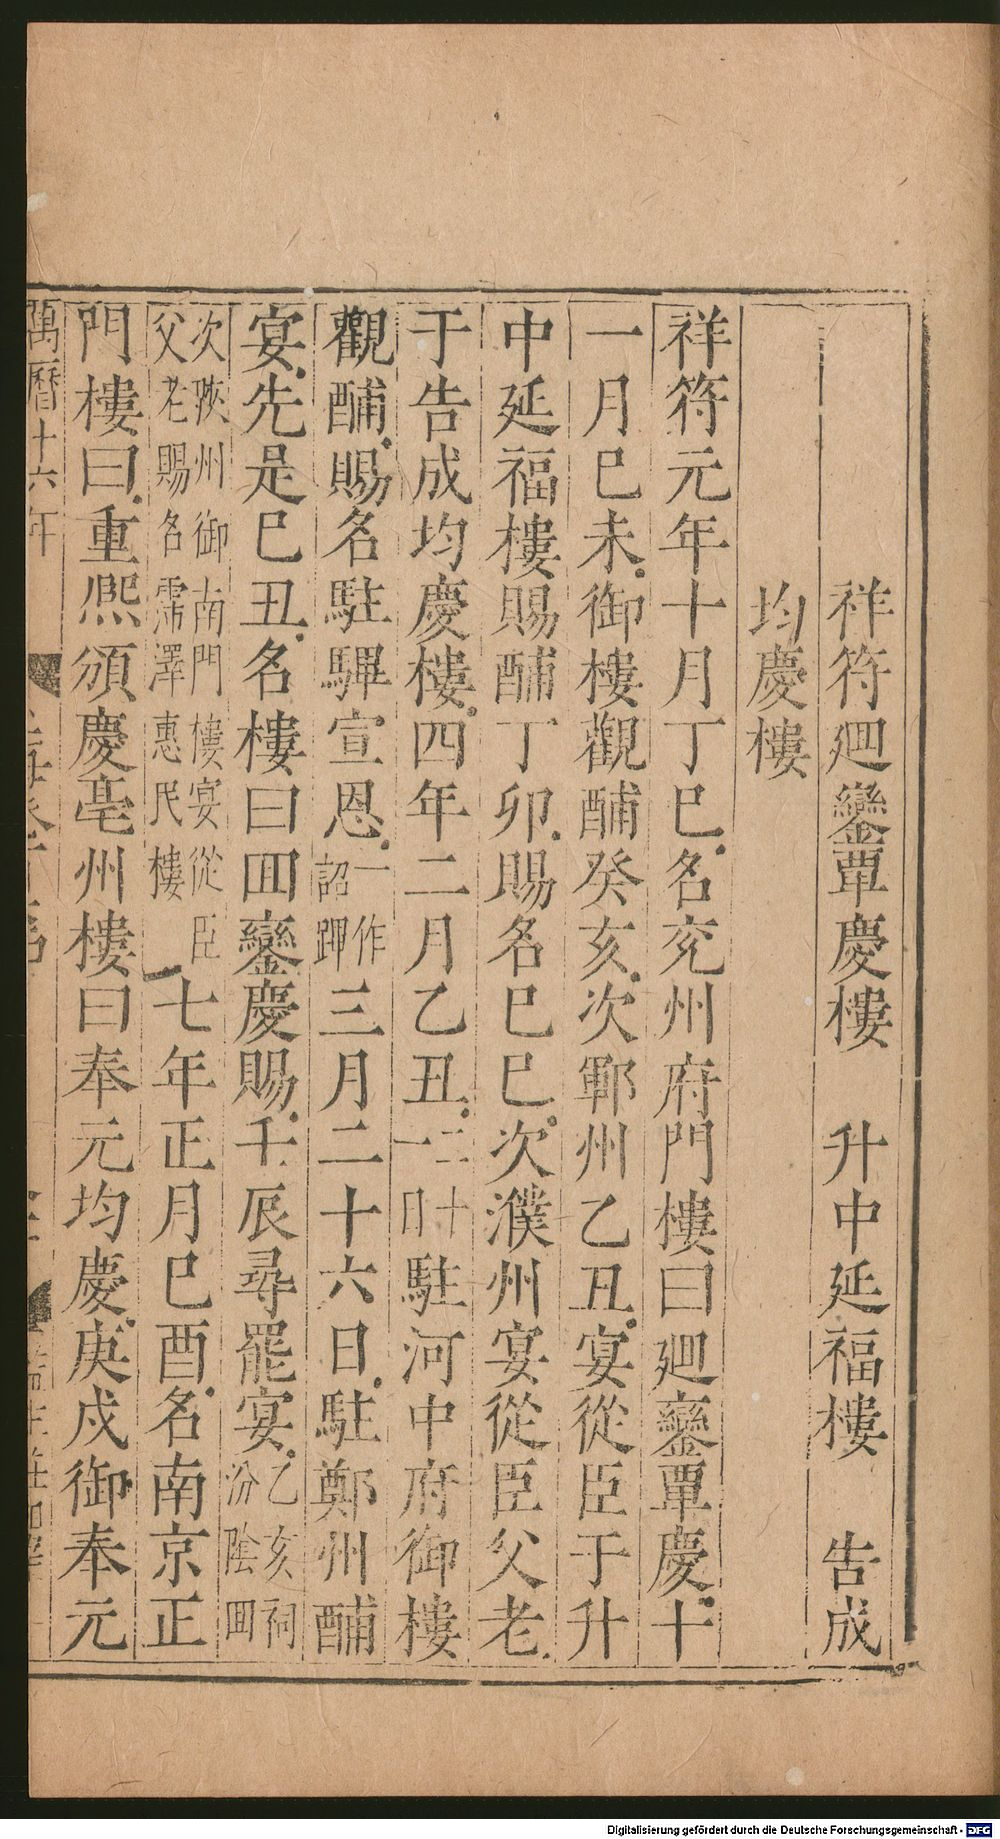 祥符廻鑾覃慶樓 升中延福樓 告成
均慶樓
祥符元年十月丁巳名兖州府門樓曰廻鑾覃慶十
一月巳未御樓觀酺癸亥次鄆州乙丑宴從臣于升
中延福樓賜酺丁卯賜名巳巳次濮州宴從臣父老
于告成均慶樓四年二月乙丑二十一日駐河中府御樓
觀酺賜名駐驆宣恩一作詔蹕三月二十六日駐鄭州酺
宴先是巳丑名樓曰囬鑾慶賜壬辰尋罷宴乙亥祠汾陰囬
次陜州御南門樓宴從臣父老賜名霈澤惠民樓七年正月巳酉名南京正
門樓曰重熈頒慶亳州樓曰奉元均慶庚戍御奉元
萬曆十六年
Digitalisierung gefördert durch die Deutsche Forschungsgemeinschaft - DFG